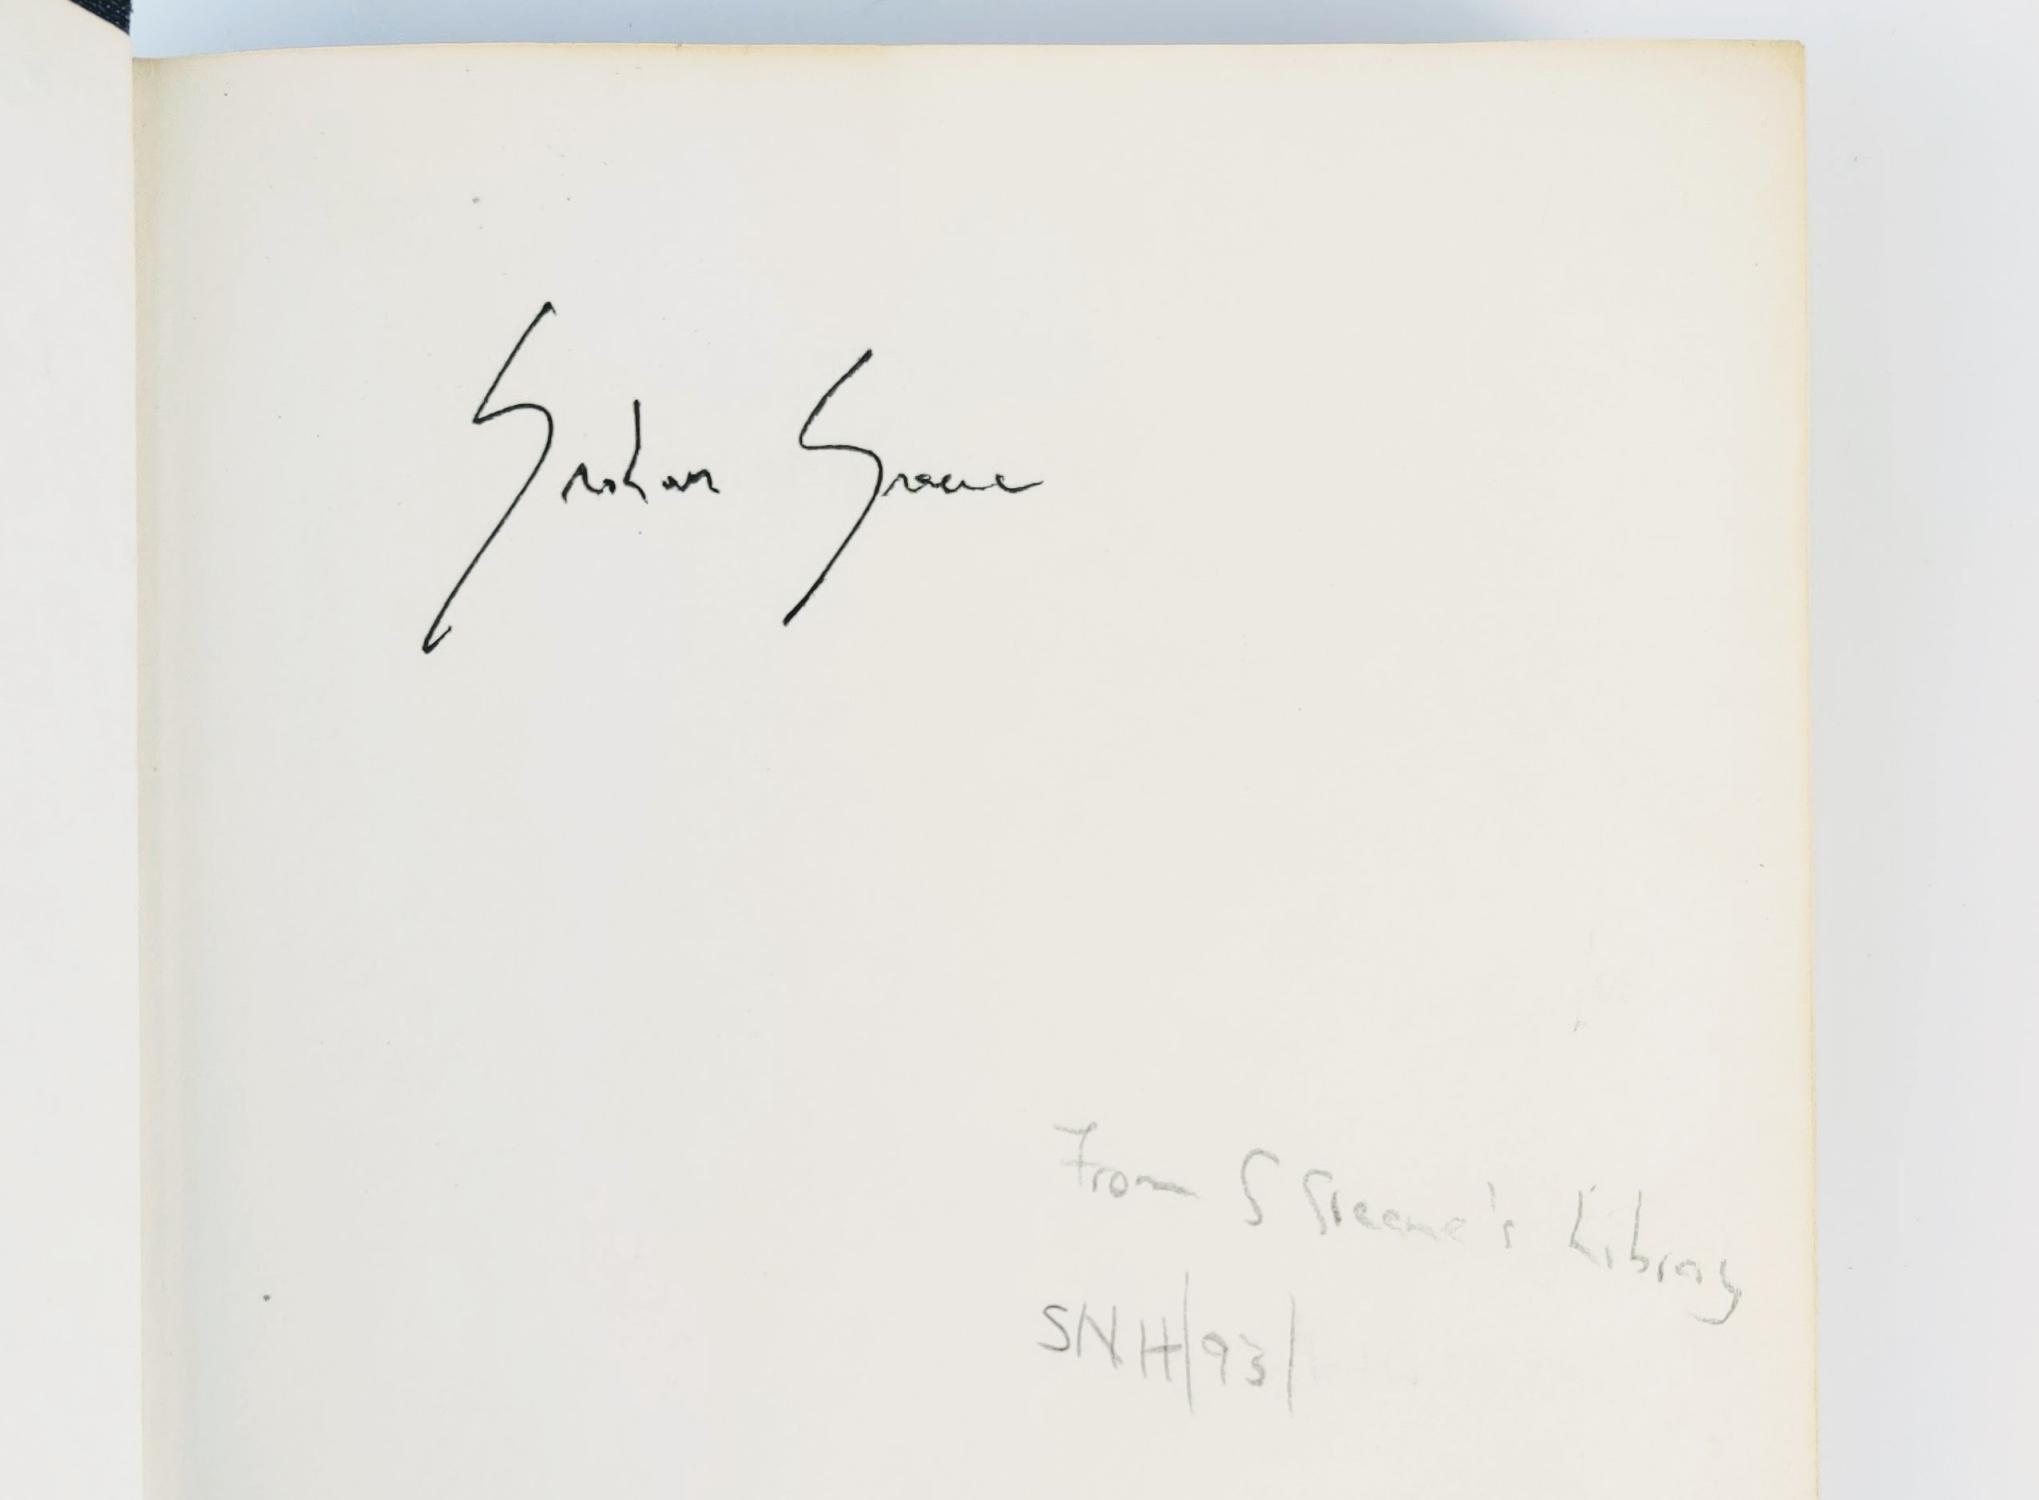 Graham Greene
From G Greene's Library
SNH/93/